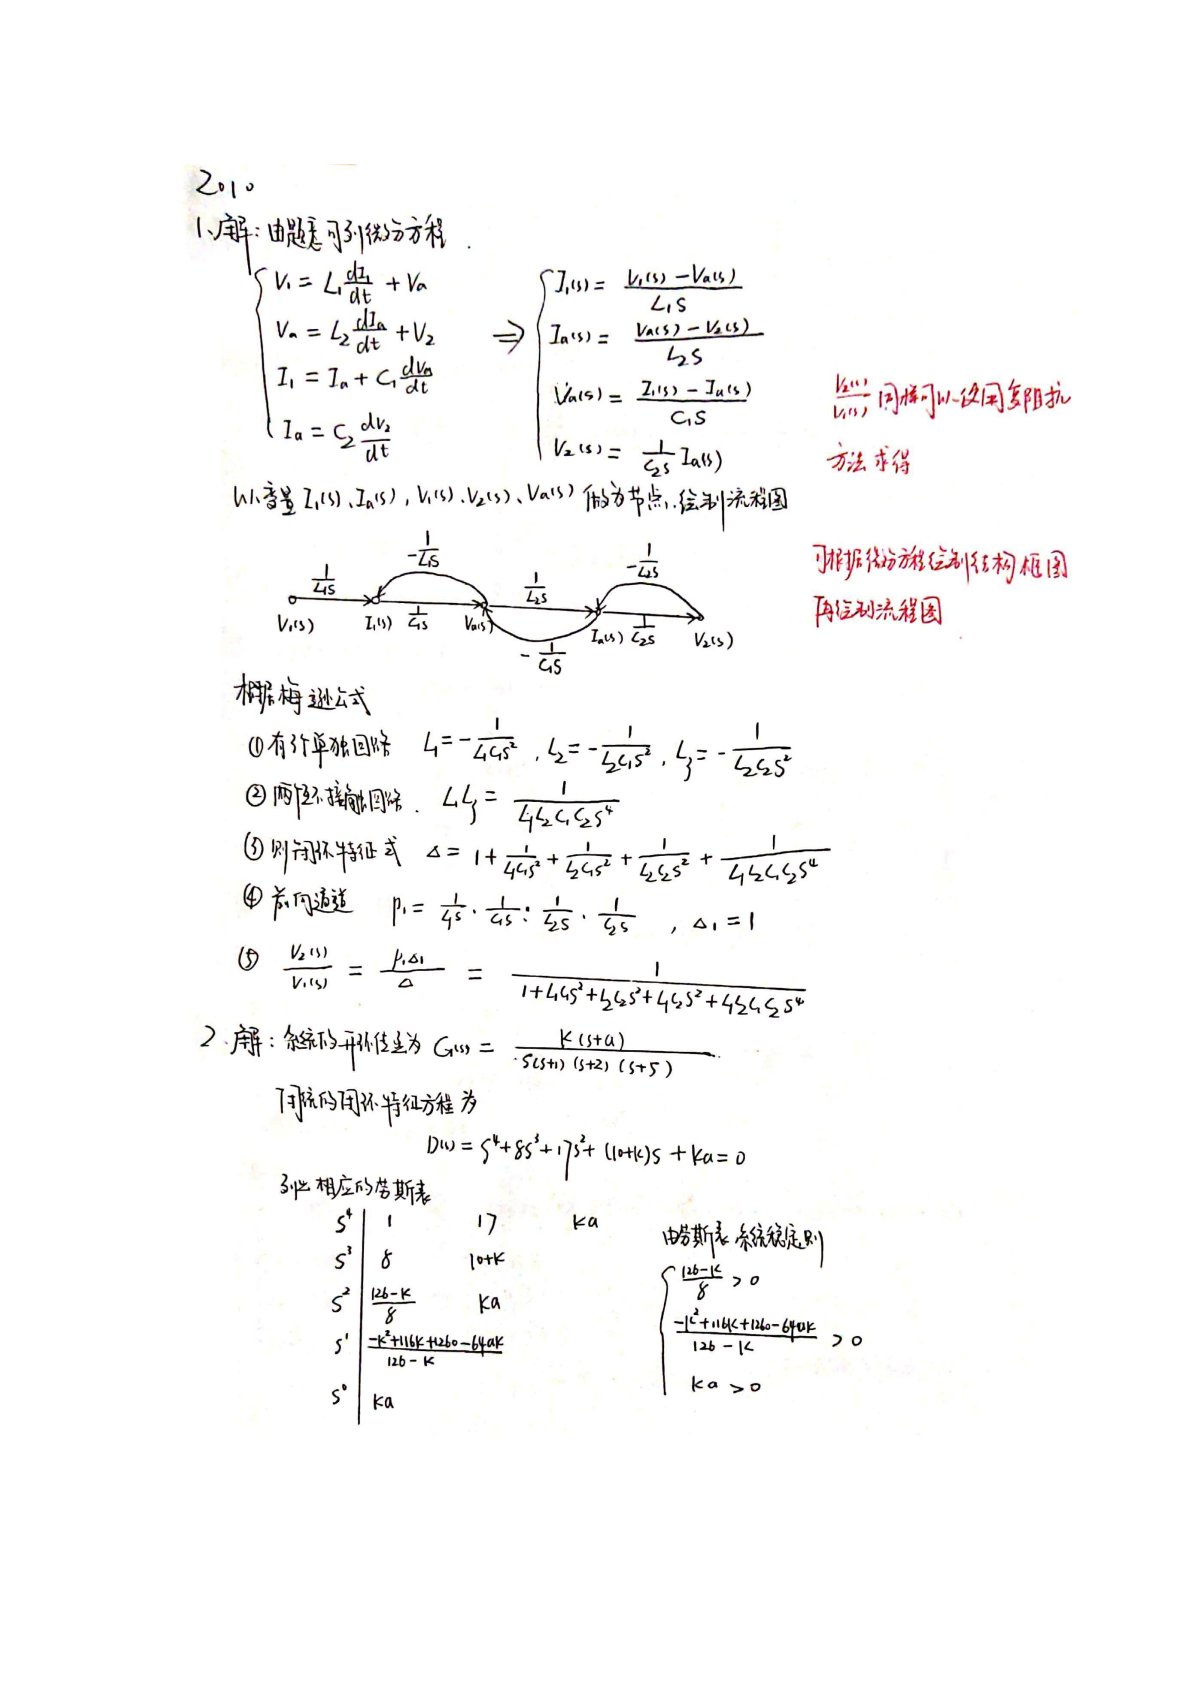 2010
1、解：由题意可列微分方程．
V₁ = L₁ dI₁/dt + Va
Va = L₂ dIa/dt + V₂
I₁ = Ia + C₁ dVa/dt
Ia = C₂ dV₂/dt
⇒
I₁(s) = (V₁(s) − Va(s))/(L₁S)
Ia(s) = (Va(s) − V₂(s))/(L₂S)
Va(s) = (I₁(s) − Ia(s))/(C₁S)
V₂(s) = 1/(C₂S) Ia(s)
V₂(s)/V₁(s) 同样可以使用复阻抗
方法求得
以变量 I₁(s)、Ia(s), V₁(s)、V₂(s)、Va(s) 做为节点，绘制流程图
可根据微分方程绘制结构框图
再绘制流程图
−1/(L₁S) −1/(L₂S)
1/(L₁S) 1/(L₂S)
V₁(s) I₁(s) 1/(C₁S) Va(s) Ia(s) 1/(C₂S) V₂(s)
−1/(C₁S)
根据梅逊公式
① 有3个单独回路 L₁ = −1/(L₁C₁S²), L₂ = −1/(L₂C₁S²), L₃ = −1/(L₂C₂S²)
② 两两不接触回路． L₁L₃ = 1/(L₁L₂C₁C₂S⁴)
③ 则闭环特征式 Δ = 1 + 1/(L₁C₁S²) + 1/(L₂C₁S²) + 1/(L₂C₂S²) + 1/(L₁L₂C₁C₂S⁴)
④ 前向通道 P₁ = 1/(L₁S) · 1/(C₁S) · 1/(L₂S) · 1/(C₂S) , Δ₁ = 1
⑤ V₂(s)/V₁(s) = P₁Δ₁/Δ = 1/(1+L₁C₁S²+L₂C₂S²+L₁C₂S²+L₁L₂C₁C₂S⁴)
2、解：系统的开环传递为 G(s) = K(s+a)/(S(s+1)(s+2)(s+5))
闭统的闭环特征方程为
D(s) = S⁴+8S³+17S²+(10+K)S+Ka=0
列出相应的劳斯表
S⁴ | 1 17 Ka
S³ | 8 10+K
S² | (126−K)/8 Ka
S¹ | (−K²+116K+1260−64aK)/(126−K)
S⁰ | Ka
由劳斯表 系统稳定则
(126−K)/8 > 0
(−K²+116K+1260−64aK)/(126−K) > 0
Ka > 0